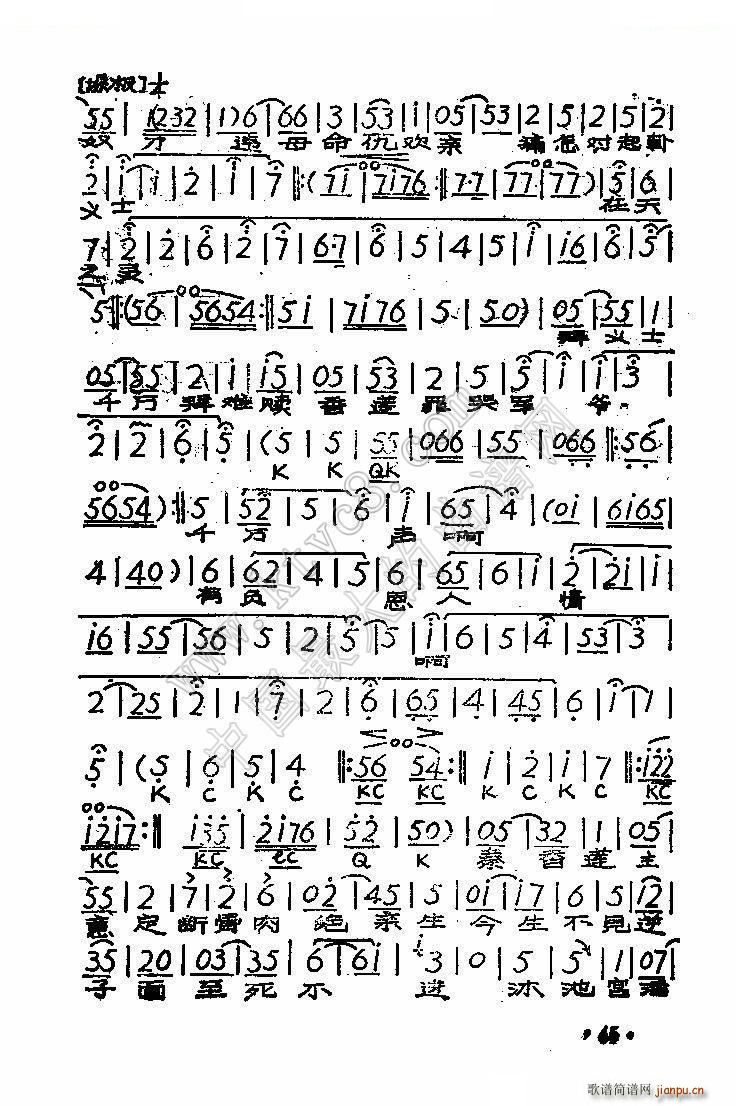 55 | (232 | 1)6 | 66 | 3 | 53 | i | 05 | 53 | 2 | 5 | 2 | 5 | 2 |
奴 才 违 母 命 仇 欢 亲 痛 怎 对 起 韩
2 | i | i | 2 | i | 7 ‖: (7i | 7i76 :‖ 7·7 | 77 | 77) | 5 | 6 |
义 士 在 天
7 | 2 | 2 | 6 | 2 | 7 | 6·7 | 6 | 5 | 4 | 5 | i | i6 | 6 | 5 |
之 灵
5 ‖: (56 | 5654 :‖ 5i | 7i76 | 5 | 50) | 05 | 55 | 1 |
拜 义 士
05 | 55 | 2 | i | i5 | 05 | 53 | 2 | 5 | 5 | i | 3 |
千 万 拜 难 赎 香 莲 罪 哭 军 爷
2 | 2 | 6 | 5 | (5 | 5 | 55 | 066 | 55 | 066 ‖: 56 |
K K QK
5654) :‖ 5 | 52 | 5 | 6 | i | 65 | 4 | (0i | 6i65 |
千 万 声 啊
4 | 40) | 6 | 62 | 4 | 5 | 6 | 65 | 6 | i | 2 | 2i | i |
负 恩 人 情
i6 | 55 | 56 | 5 | 2 | 5 | 5 | i | 6 | 5 | 4 | 53 | 3 |
啊
2 | 25 | 2 | 1 | 7 | 2 | 6 | 65 | 4 | 45 | 6 | i | 1 |
5 | (5 | 6 | 5 | 4 ‖: 56 54 :‖ i | 2 | i | 7 ‖: i22 |
K C K C KC KC K C K C KC
i2i7 :‖ i35 | 2i76 | 52 | 50) | 05 | 32 | 1 | 05 |
KC KC KC Q K 秦 香 莲 主
55 | 2 | 7 | 2 | 6 | 02 | 45 | 5 | 0i | i7 | 6 | 5 | i2 |
意 定 断 骨 肉 绝 亲 生 今 生 不 见 逆
35 | 20 | 03 | 35 | 6 | 6i | 3 | 0 | 5 | 5 | 1 | 07 |
子 面 至 死 不 进 沐 池 宫
·65·
歌谱简谱网
jianpu.cn